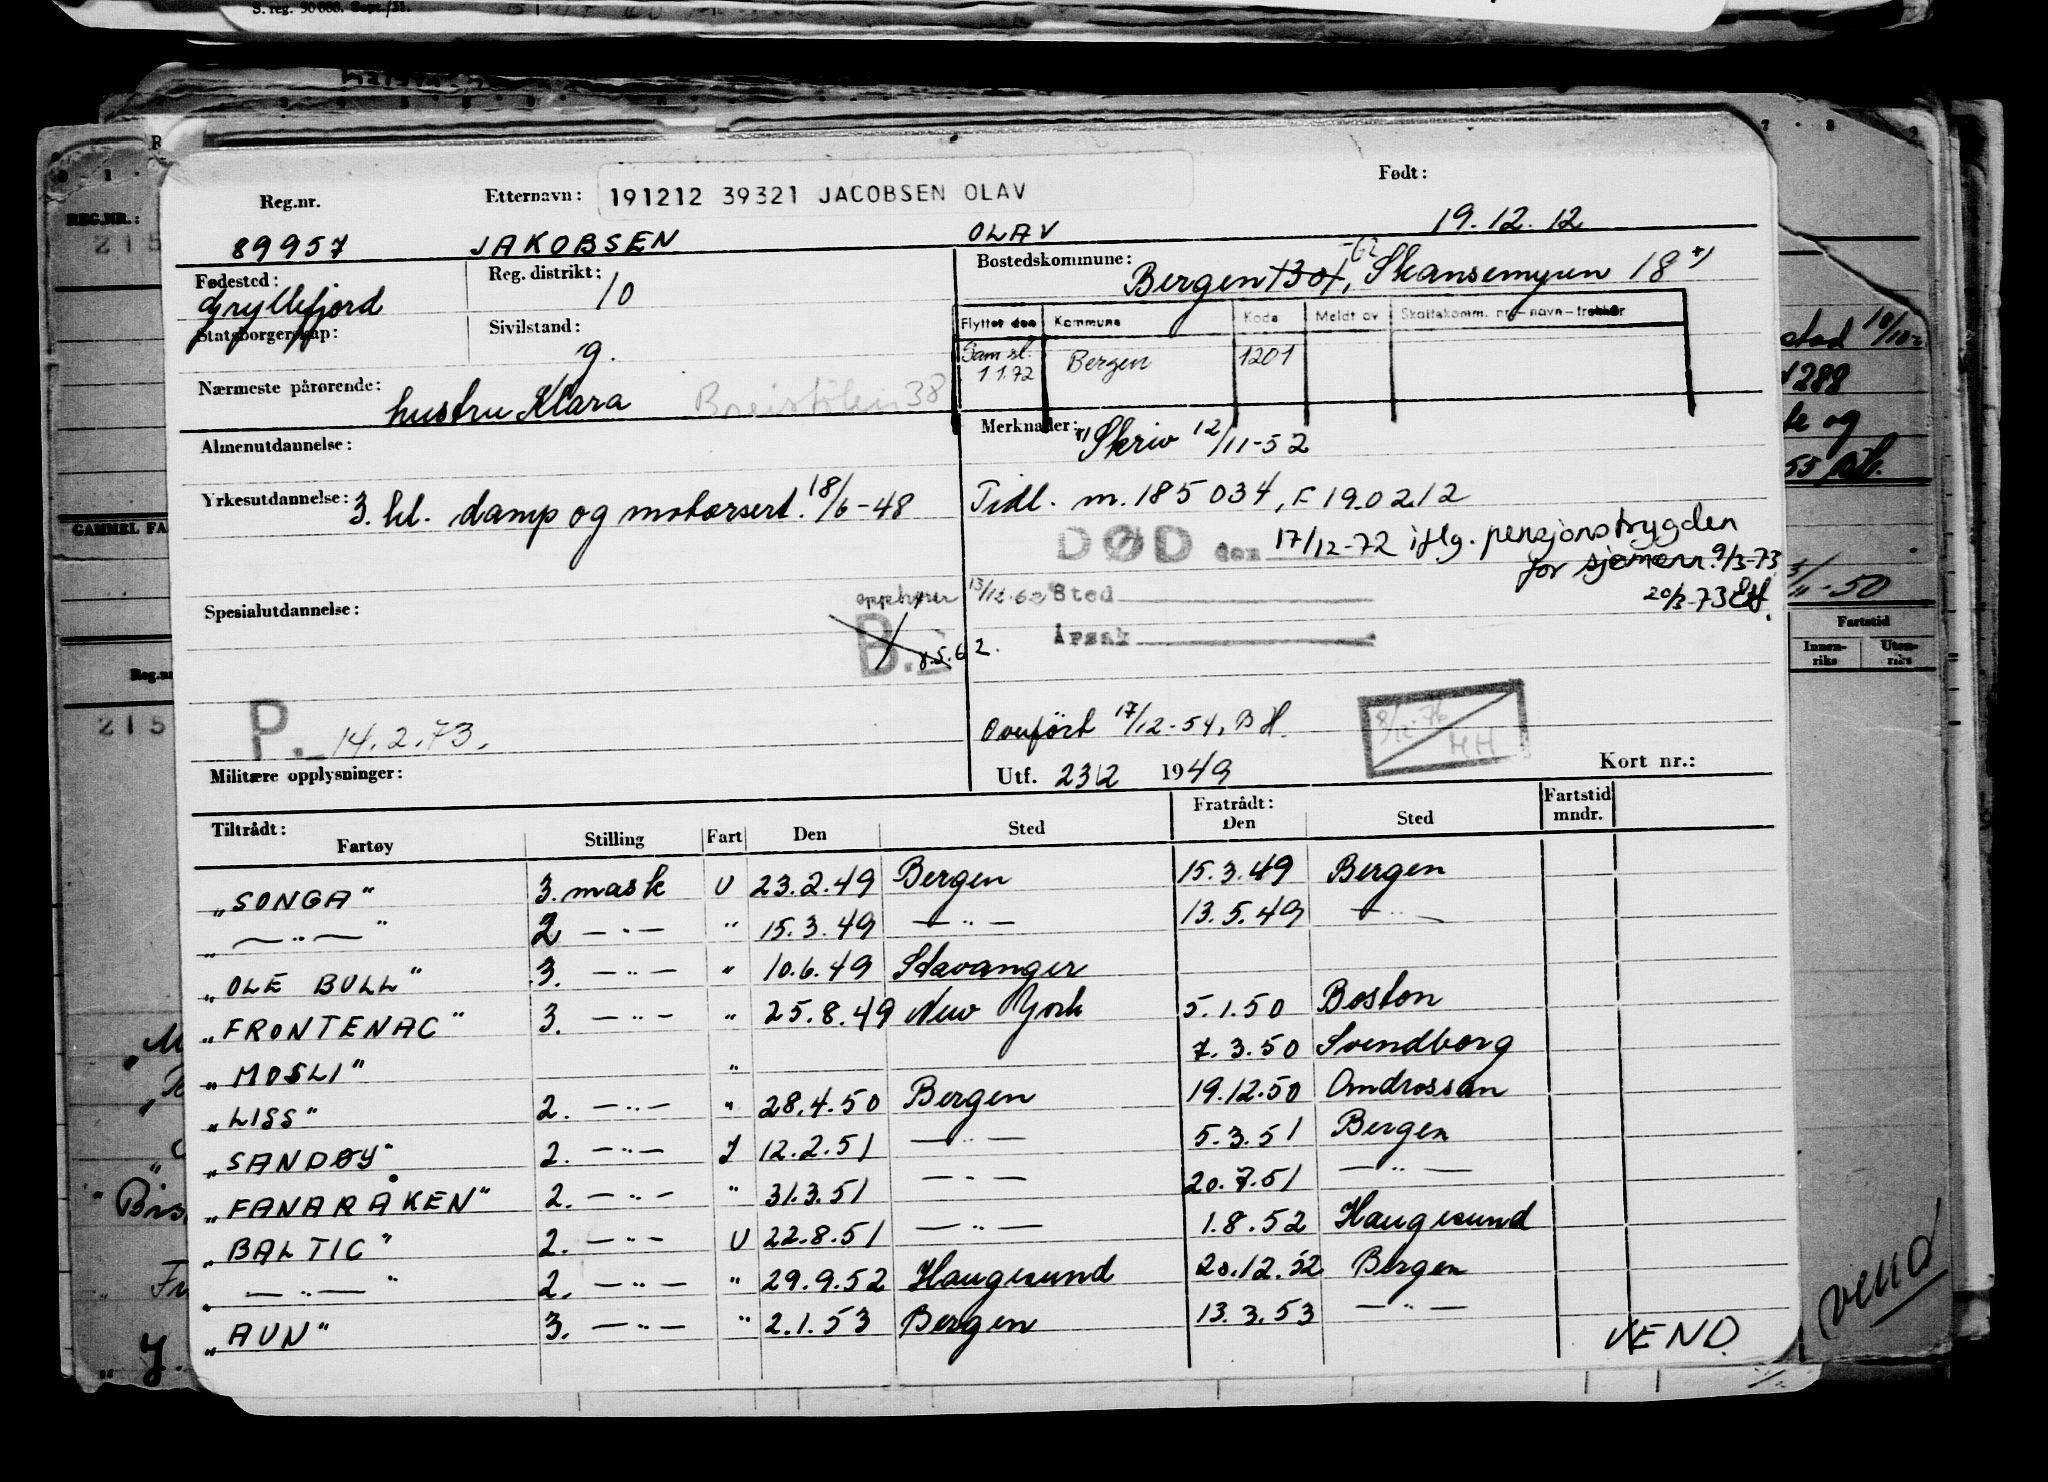 S. reg. 50 000. Sept./51.
Reg.nr. Etternavn: 191212 39321 JACOBSEN OLAV Født:
89957 JAKOBSEN OLAV 19.12.12
Fødested: Gryllefjord Reg. distrikt: 10 Bostedskommune: Bergen 1301, Skansemyren 18 +)
Statsborgerskap: Sivilstand: g.
Flyttet den Kommune Kode Meldt av Skattekomm. nr.-navn-trekkår
Sam.sl. 1 1.72 Bergen 1201
Nærmeste pårørende: hustru Klara Breistølen 38
Almenutdannelse: Merknader: +) Skriv 12/11-52
Yrkesutdannelse: 3. kl. damp og motorsert. 18/6-48 Tidl. m. 185034, F 190212
DØD den 17/12-72 iflg. pensjonstrygden
for sjømenn 9/3-73
20/3-73 EH.
Spesialutdannelse: opphører 13/12.62 Sted
B.E 8.5.62. Årsak
P. 14.2.73. Overført 17/12-54, BH. 8/12-76 HH
Militære opplysninger: Utf. 23/2 1949 Kort nr.:
Tiltrådt: Fratrådt: Fartstid mndr.
Fartøy Stilling Fart Den Sted Den Sted
„SONGA" 3. mask U 23.2.49 Bergen 15.3.49 Bergen
„—„—" 2 —„— " 15.3.49 —„— 13.5.49 —„—
„OLE BULL" 3. —„— " 10.6.49 Stavanger
„FRONTENAC" 3. —„— " 25.8.49 New York 5.1.50 Boston
„MOSLI" " 7.3.50 Svendborg
„LISS" 2. —„— " 28.4.50 Bergen 19.12.50 Omdrossan
„SANDØY" 2. —„— I 12.2.51 —„— 5.3.51 Bergen
„FANARÅKEN" 2. —„— " 31.3.51 —„— 20.7.51 —„—
„BALTIC" 2. —„— U 22.8.51 —„— 1.8.52 Haugesund
„—„—" 2. —„— " 29.9.52 Haugesund 20.12.52 Bergen
„AUN" 3. —„— " 2.1.53 Bergen 13.3.53 —„—
VEND.
REG.NR.:
215
GAMMEL FA
Reg.nr
215
stad 10/10-
288
te og
55
11-50
Fartstid
Innenriks Utenriks
Vend